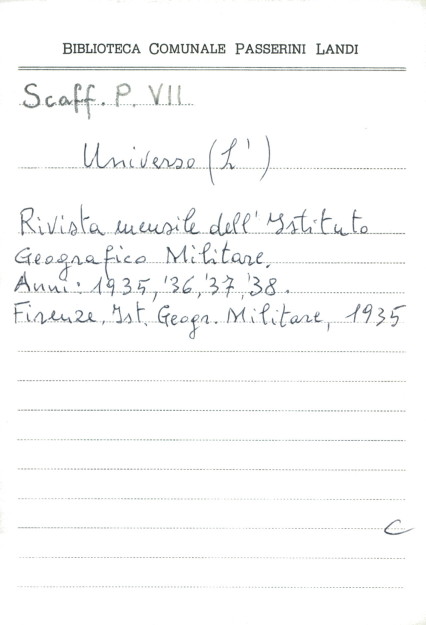 BIBLIOTECA COMUNALE PASSERINI LANDI
Scaff. P. VII
Universo (L')
Rivista mensile dell'Istituto
Geografico Militare.
Anni: 1935, '36, '37, '38.
Firenze, Ist. Geogr. Militare, 1935
C